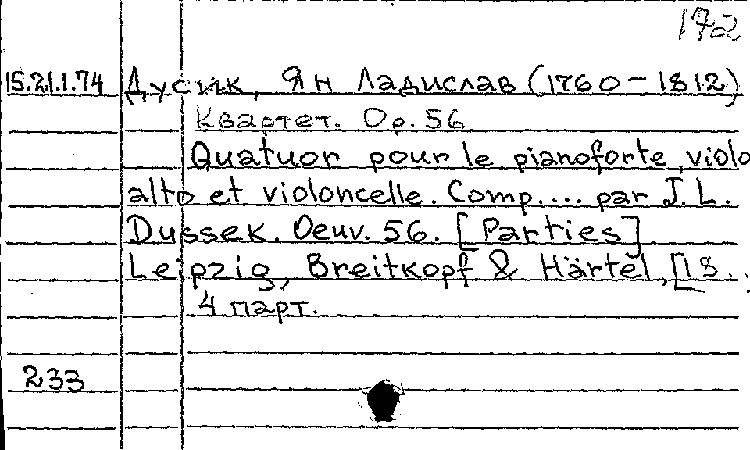 172
15.21.1.74 Дусик, Ян Ладислав (1760-1812)
Квартет. Op. 56
Quatuor pour le pianoforte, violo
alto et violoncelle. Comp.... par J. L.
Dussek. Oeuv. 56. [Parties].
Leipzig, Breitkopf & Härtel, [18..
4 парт.
233